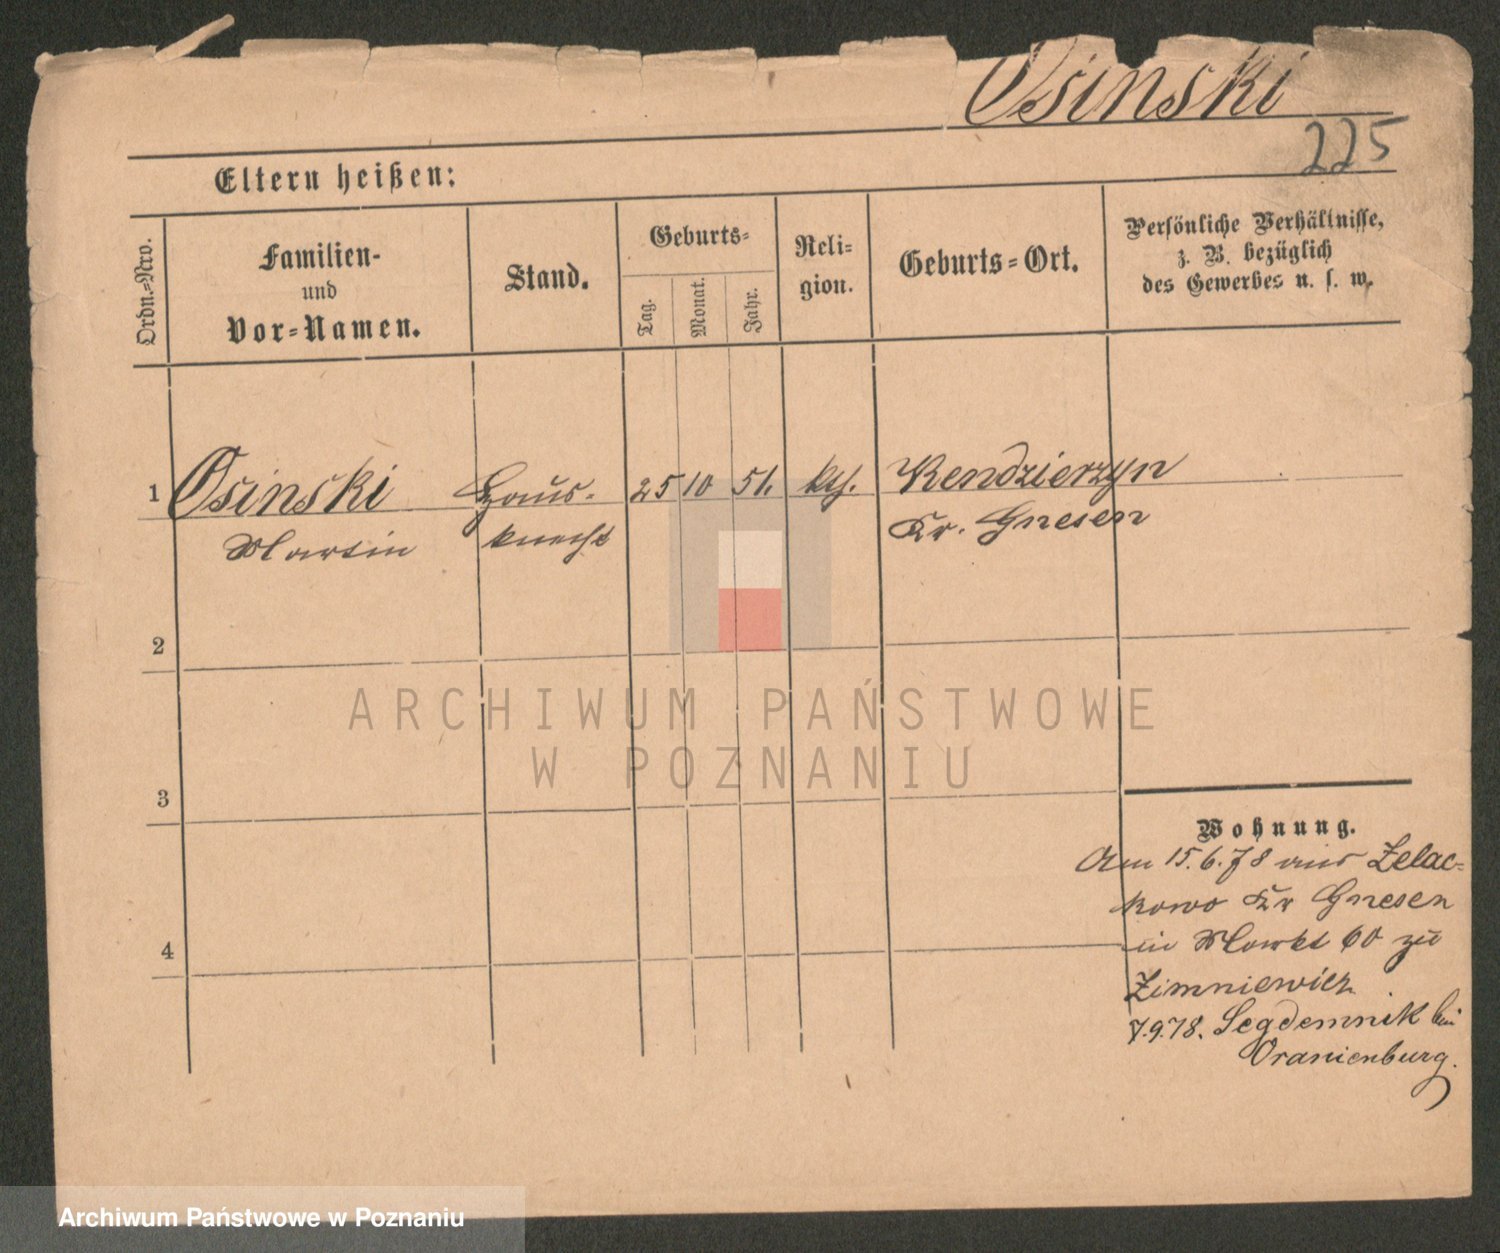 Osinski
225
Eltern heißen:
Ordn.-Nro.
Familien-
und
Vor-Namen.
Stand.
Geburts-
Tag.
Monat.
Jahr.
Reli-
gion.
Geburts-Ort.
Persönliche Verhältnisse,
z. B. bezüglich
des Gewerbes u. s. w.
1 Osinski Haus- 25 10 51. kth. Kendzierzyn
Martin knecht Kr. Gnesen
2
3
4
Wohnung.
Am 15.6.78 aus Zelac-
kowo Kr Gnesen
in Markt 60 zu
Zimniewicz
7.9.78. Segdemnik bei
Oranienburg.
ARCHIWUM PAŃSTWOWE
W POZNANIU
Archiwum Państwowe w Poznaniu